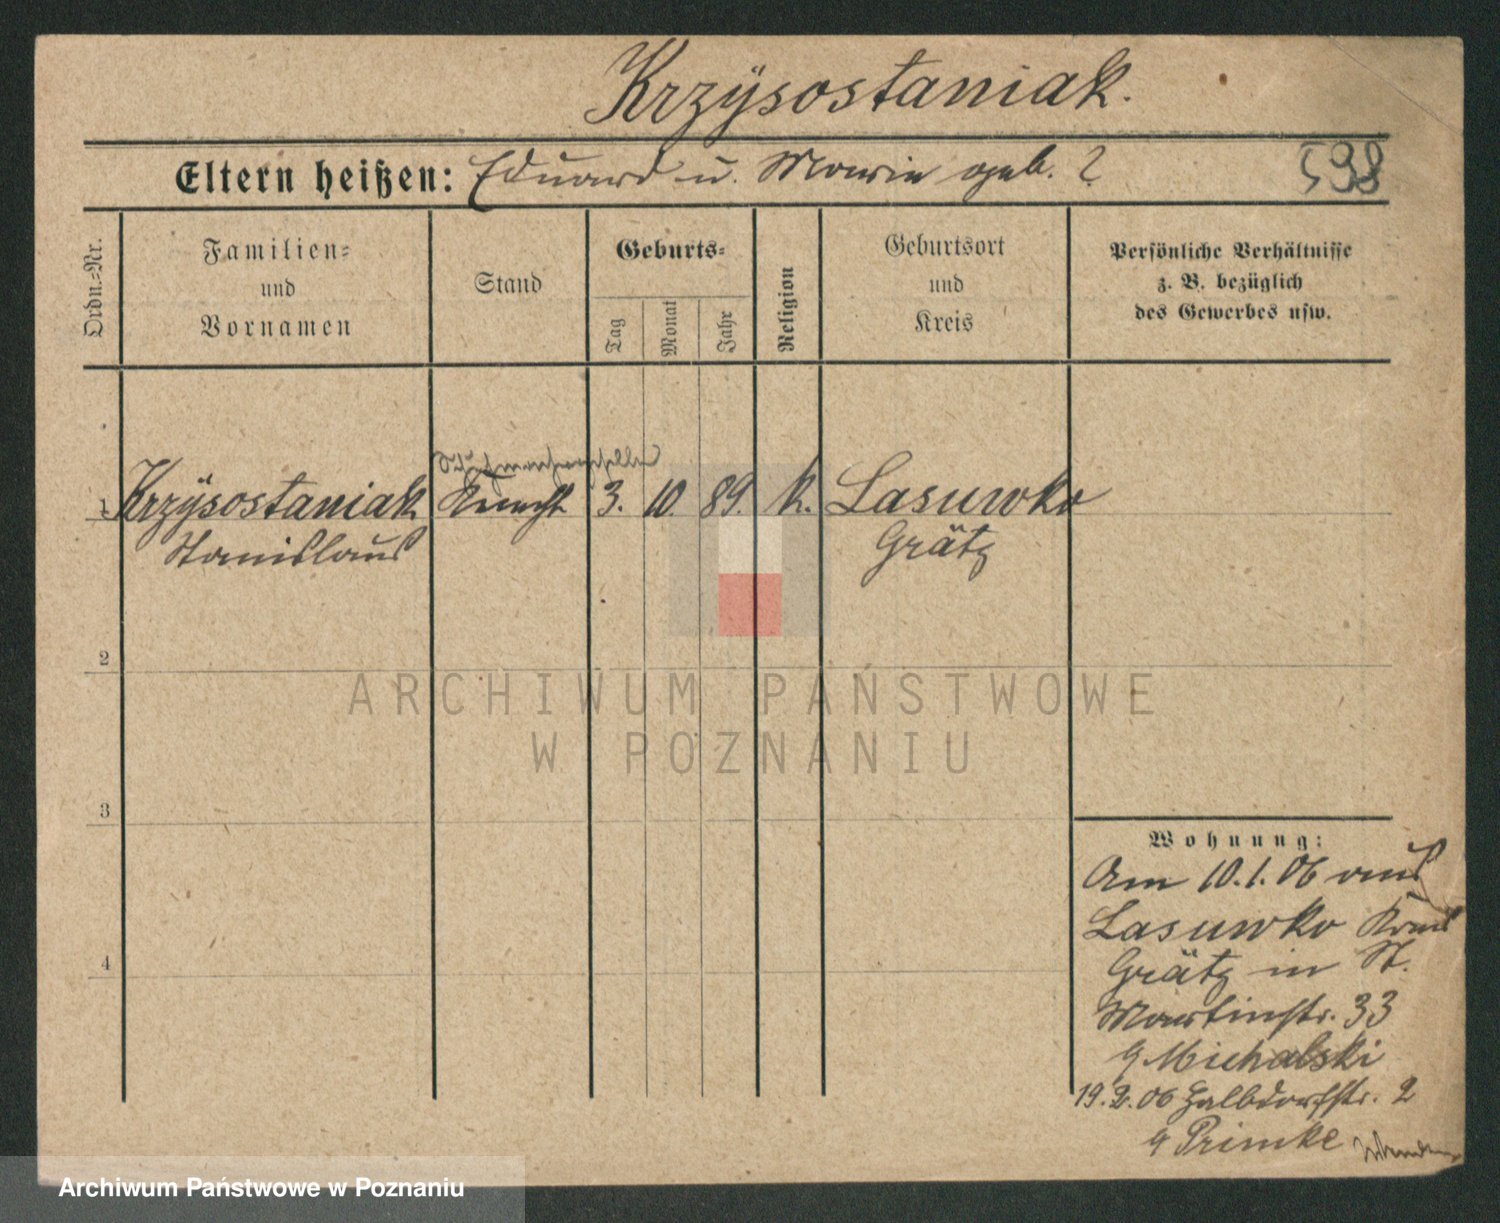 Krzÿsostaniak.
Eltern heißen: Eduard u. Marie geb. ?
598
Ordn.-Nr.
Familien-
und
Vornamen
Stand
Geburts-
Tag
Monat
Jahr
Religion
Geburtsort
und
Kreis
Persönliche Verhältnisse
z. B. bezüglich
des Gewerbes usw.
1 Krzÿsostaniak Knecht 3. 10. 89. k. Lasuwko
Stanislaus Grätz
2
3
4
Wohnung:
Am 10.1.06 aus
Lasuwko Kreis
Grätz in St.
Martinstr. 33
b Michalski
19.2.06 Halbdorfstr. 2
b Primke
ARCHIWUM PAŃSTWOWE
W POZNANIU
Archiwum Państwowe w Poznaniu